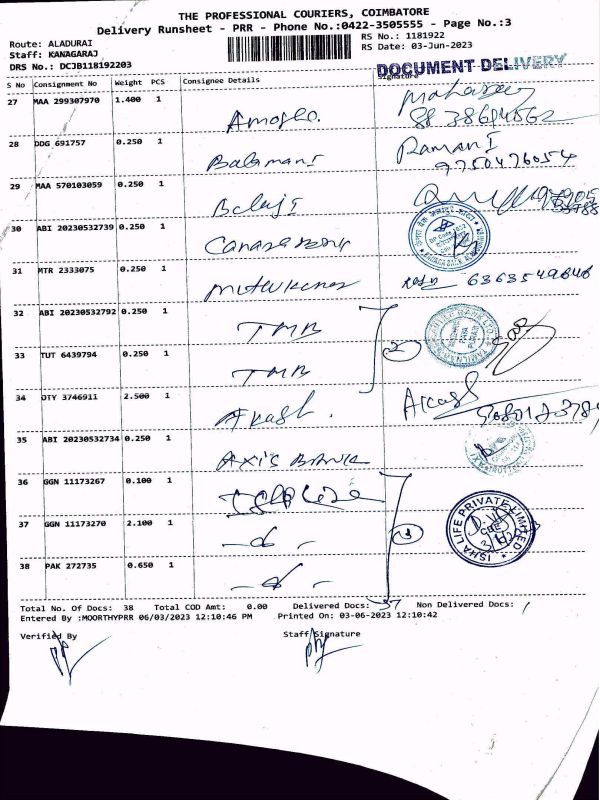 THE PROFESSIONAL COURIERS, COIMBATORE
Delivery Runsheet - PRR - Phone No.:0422-3505555 - Page No.:3
Route: ALADURAI
RS No.: 1181922
Staff: KANAGARAJ
RS Date: 03-Jun-2023
DRS No.: DCJB118192203
DOCUMENT DELIVERY
S No Consignment No Weight PCS Consignee Details Signature
27 MAA 299307970 1.400 1
28 DDG 691757 0.250 1 Ramani
9750476054
29 MAA 570103059 0.250 1 Balaji
30 ABI 20230532739 0.250 1
31 MTR 2333075 0.250 1 6363549848
32 ABI 20230532792 0.250 1 TMB
2
33 TUT 6439794 0.250 1 TMB
34 OTY 3746911 2.500 1 Akash. Akash
35 ABI 20230532734 0.250 1 AXIS BANK
36 GGN 11173267 0.100 1
37 GGN 11173270 2.100 1 -d-
3
ISHA LIFE PRIVATE LIMITED
38 PAK 272735 0.650 1 -d-
Total No. Of Docs: 38 Total COD Amt: 0.00 Delivered Docs: 37 Non Delivered Docs: 1
Entered By :MOORTHYPRR 06/03/2023 12:10:46 PM Printed On: 03-06-2023 12:10:42
Verified By Staff Signature